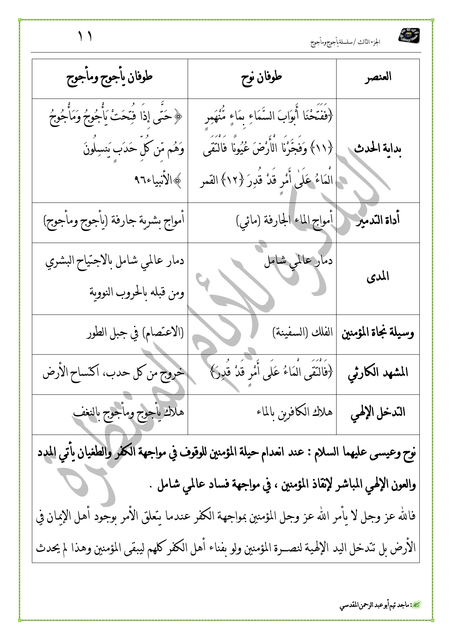 الجزء الثالث / سلسلة يأجوج ومأجوج
١١
العنصر
طوفان نوح
طوفان يأجوج ومأجوج
بداية الحدث
﴿فَفَتَحْنَا أَبْوَابَ السَّمَاءِ بِمَاءٍ مُنْهَمِرٍ
﴿١١﴾ وَفَجَّرْنَا الْأَرْضَ عُيُونًا فَالْتَقَى
الْمَاءُ عَلَى أَمْرٍ قَدْ قُدِرَ ﴿١٢﴾ القمر
﴿ حَتَّى إِذَا فُتِحَتْ يَأْجُوجُ وَمَأْجُوجُ
وَهُم مِّن كُلِّ حَدَبٍ يَنسِلُونَ
﴾الأنبياء٩٦
أداة التدمير
أمواج الماء الجارفة (مائي)
أمواج بشرية جارفة (يأجوج ومأجوج)
المدى
دمار عالمي شامل
دمار عالمي شامل بالاجتياح البشري
ومن قبله بالحروب النووية
وسيلة نجاة المؤمنين
الفلك (السفينة)
(الاعتصام) في جبل الطور
المشهد الكارثي
﴿فَالْتَقَى الْمَاءُ عَلَى أَمْرٍ قَدْ قُدِرَ﴾
خروج من كل حدب، اكتساح الأرض
التدخل الإلهي
هلاك الكافرين بالماء
هلاك يأجوج ومأجوج بالنغف
نوح وعيسى عليهما السلام : عند انعدام حيلة المؤمنين للوقوف في مواجهة الكفر والطغيان يأتي المدد
والعون الإلهي المباشر لإنقاذ المؤمنين ، في مواجهة فساد عالمي شامل .
فالله عز وجل لا يأمر الله عز وجل المؤمنين بمواجهة الكفر عندما يتعلق الأمر بوجود أهل الإيمان في
الأرض بل تتدخل اليد الإلهية لنصرة المؤمنين ولو بفناء أهل الكفر كلهم ليبقى المؤمنين وهذا لم يحدث
التذكرة للأيام المنتظرة
: ماجد تيم أبو عبد الرحمن المقدسي